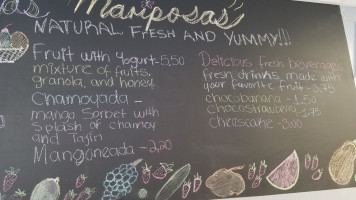 Mariposas
NATURAL. FRESH AND YUMMY!!!
Fruit with Yogurt-5,50
mixture of fruits,
granola, and honey
Chamoyada -
mango Sorbet with
Splash of chamoy
and Tajin
Mangoneada - 2,20
Delicious fresh beverages
fresh drinks made with
your favorite fruit - 3.75
chocobanana - 1.50
chocostrawberry - 1.75
cheescake - 3.00